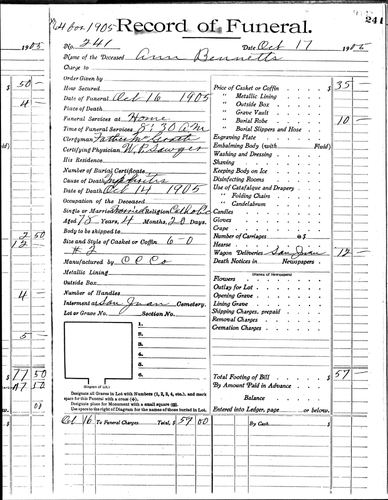 Record of Funeral.
241
1905
No. 241 Date Oct 17 1905
Name of the Deceased Ann Bennetts
Charge to
Order Given by
How Secured
Date of Funeral Oct 16 1905
Place of Death
Funeral Services at Home
Time of Funeral Services 8:30 A M
Clergyman Father
Certifying Physician
His Residence
Number of Burial Certificate
Cause of Death
Date of Death Oct 14 1905
Occupation of the Deceased
Single or Married Married Religion Catholic
Aged 78 Years, 4 Months, 20 Days.
Body to be shipped to
Size and Style of Casket or Coffin 6-0
# 2
Manufactured by
Metallic Lining
Outside Box
Number of Handles
Interment at San Juan Cemetery.
Lot or Grave No. Section No.
1.
2.
3.
4.
5.
6.
(Diagram of Lot.)
Designate all Graves in Lot with Numbers (1, 2, 3, 4, etc.), and mark
space for this Funeral with a cross (+).
Designate place for Monument with a small square (□).
Use space to right of Diagram for the names of those buried in Lot.
Oct 16 To Funeral Charges Total, $ 57 00
Price of Casket or Coffin $ 35
" Metallic Lining
" Outside Box
" Grave Vault
" Burial Robe 10
" Burial Slippers and Hose
Engraving Plate
Embalming Body (with Fluid)
Washing and Dressing
Shaving
Keeping Body on Ice
Disinfecting Rooms
Use of Catafalque and Drapery
" Folding Chairs
" Candelabrum
Candles
Gloves
Crape
Number of Carriages @ $
Hearse
Wagon Deliveries San Juan 12
Death Notices in Newspapers
Flowers
Outlay for Lot
Opening Grave
Lining Grave
Shipping Charges, prepaid
Removal Charges
Cremation Charges
Total Footing of Bill $ 57
By Amount Paid in Advance
Balance
Entered into Ledger, page or below.
By Cash $
1905
$ 50
4
2 50
12
4
5
$ 77 50